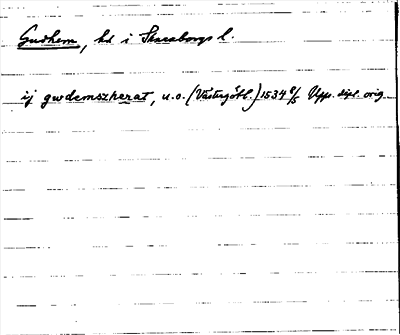 Gudhem, hd i Skaraborgs l.
ij gwdemszherat, u.o. (Västergötl.) 1534 8/5 Upps. dipl. orig